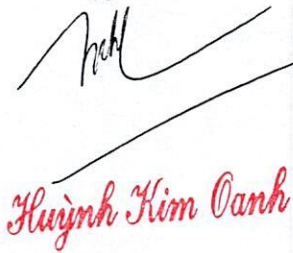 Huỳnh Kim Oanh